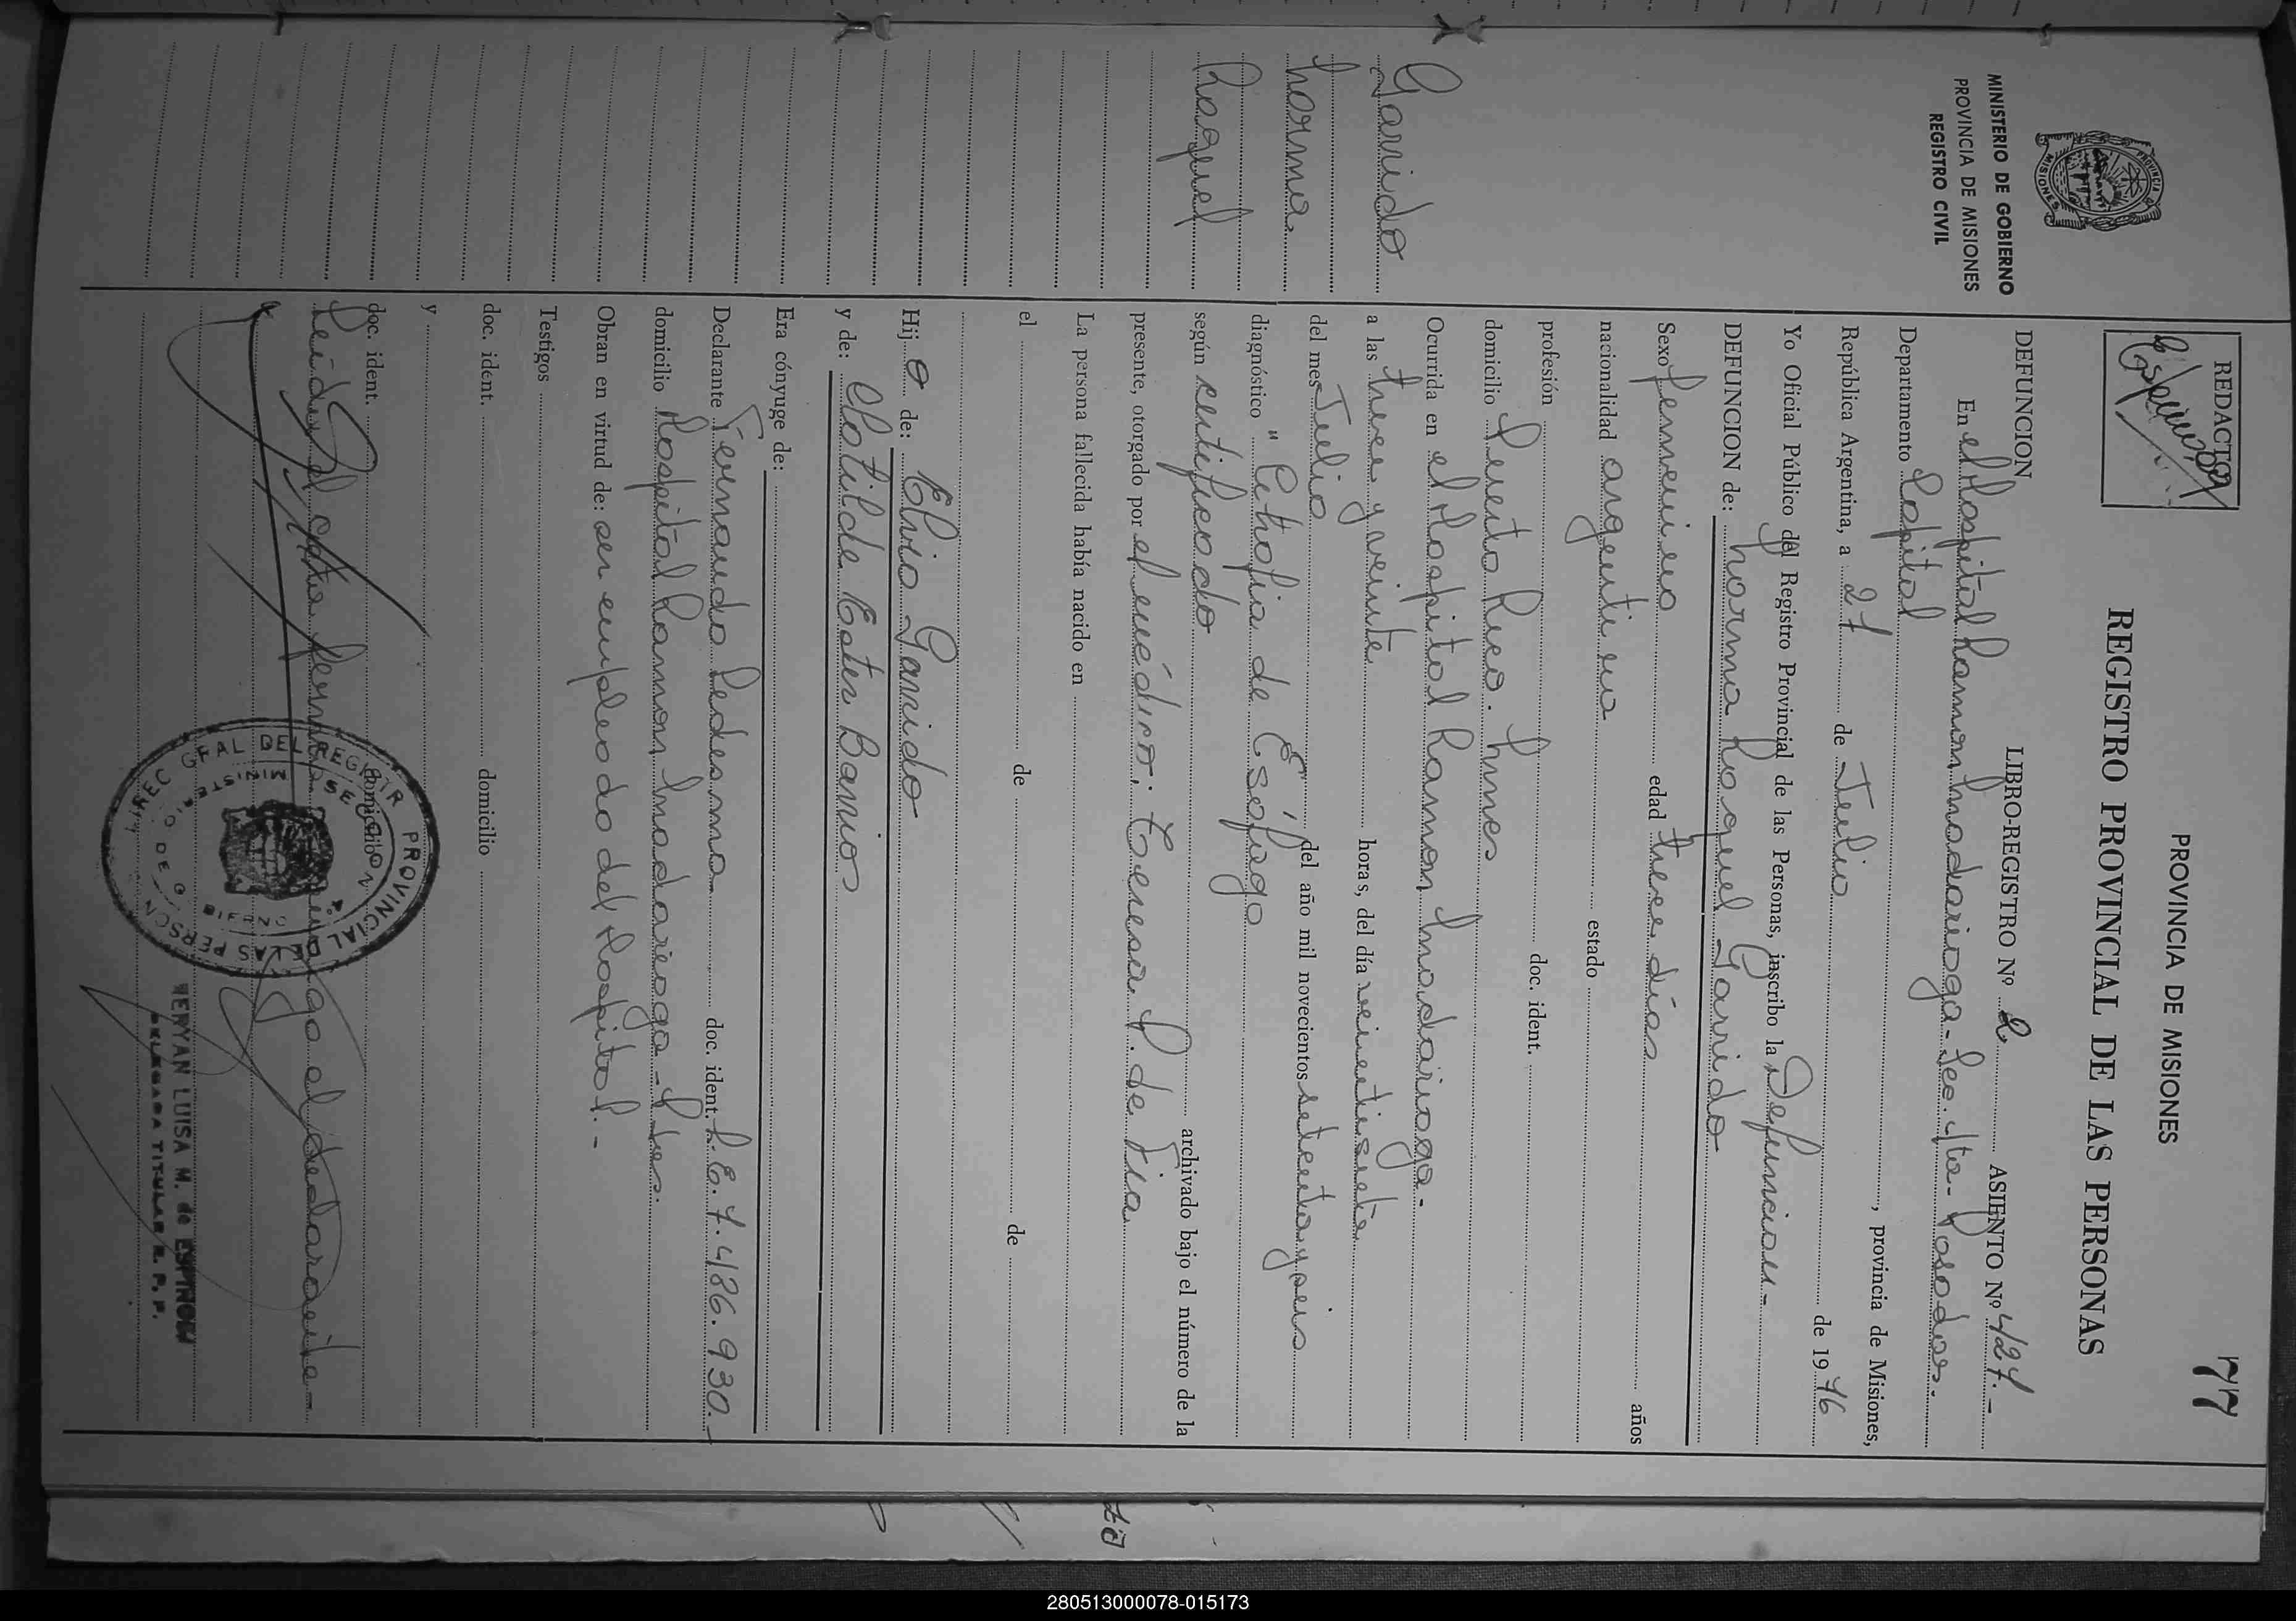 77
PROVINCIA DE MISIONES
REGISTRO PROVINCIAL DE LAS PERSONAS
REDACTO
MINISTERIO DE GOBIERNO
PROVINCIA DE MISIONES
REGISTRO CIVIL
Garrido
Norma
Raquel
DEFUNCION LIBRO-REGISTRO Nº 2 ASIENTO Nº 427.-
En el Hospital Ramon Madariaga - Sec. 4ta - Posadas.-
Departamento Capital, provincia de Misiones,
República Argentina, a 27 de Julio de 1976
Yo Oficial Público del Registro Provincial de las Personas, inscribo la Defuncion.-
DEFUNCION de: Norma Raquel Garrido
Sexo femenino edad trece días años
nacionalidad argentina estado
profesión doc. ident.
domicilio Puerto Rico. Mnes
Ocurrida en el Hospital Ramon Madariaga.-
a las tres y veinte horas, del día veintisiete
del mes Julio del año mil novecientos setenta y seis
diagnóstico " de Esófago
según certificado archivado bajo el número de la
presente, otorgado por el médico: Teresa P. de
La persona fallecida había nacido en
el de de
Hij a de: Elvio Garrido
y de: Clotilde Ester Barrios
Era cónyuge de:
Declarante Fernando Ledesma doc. ident. L.E. 7.486.930.-
domicilio Hospital Ramon Madariaga - Pdas.
Obran en virtud de: ser empleado del Hospital.-
Testigos
doc. ident. domicilio
y
doc. ident. domicilio
Leída el acta firma conmigo el declarante.-
MERYAN LUISA M. de ESPINOZA
DELEGADA TITULAR R. P. P.
280513000078-015173